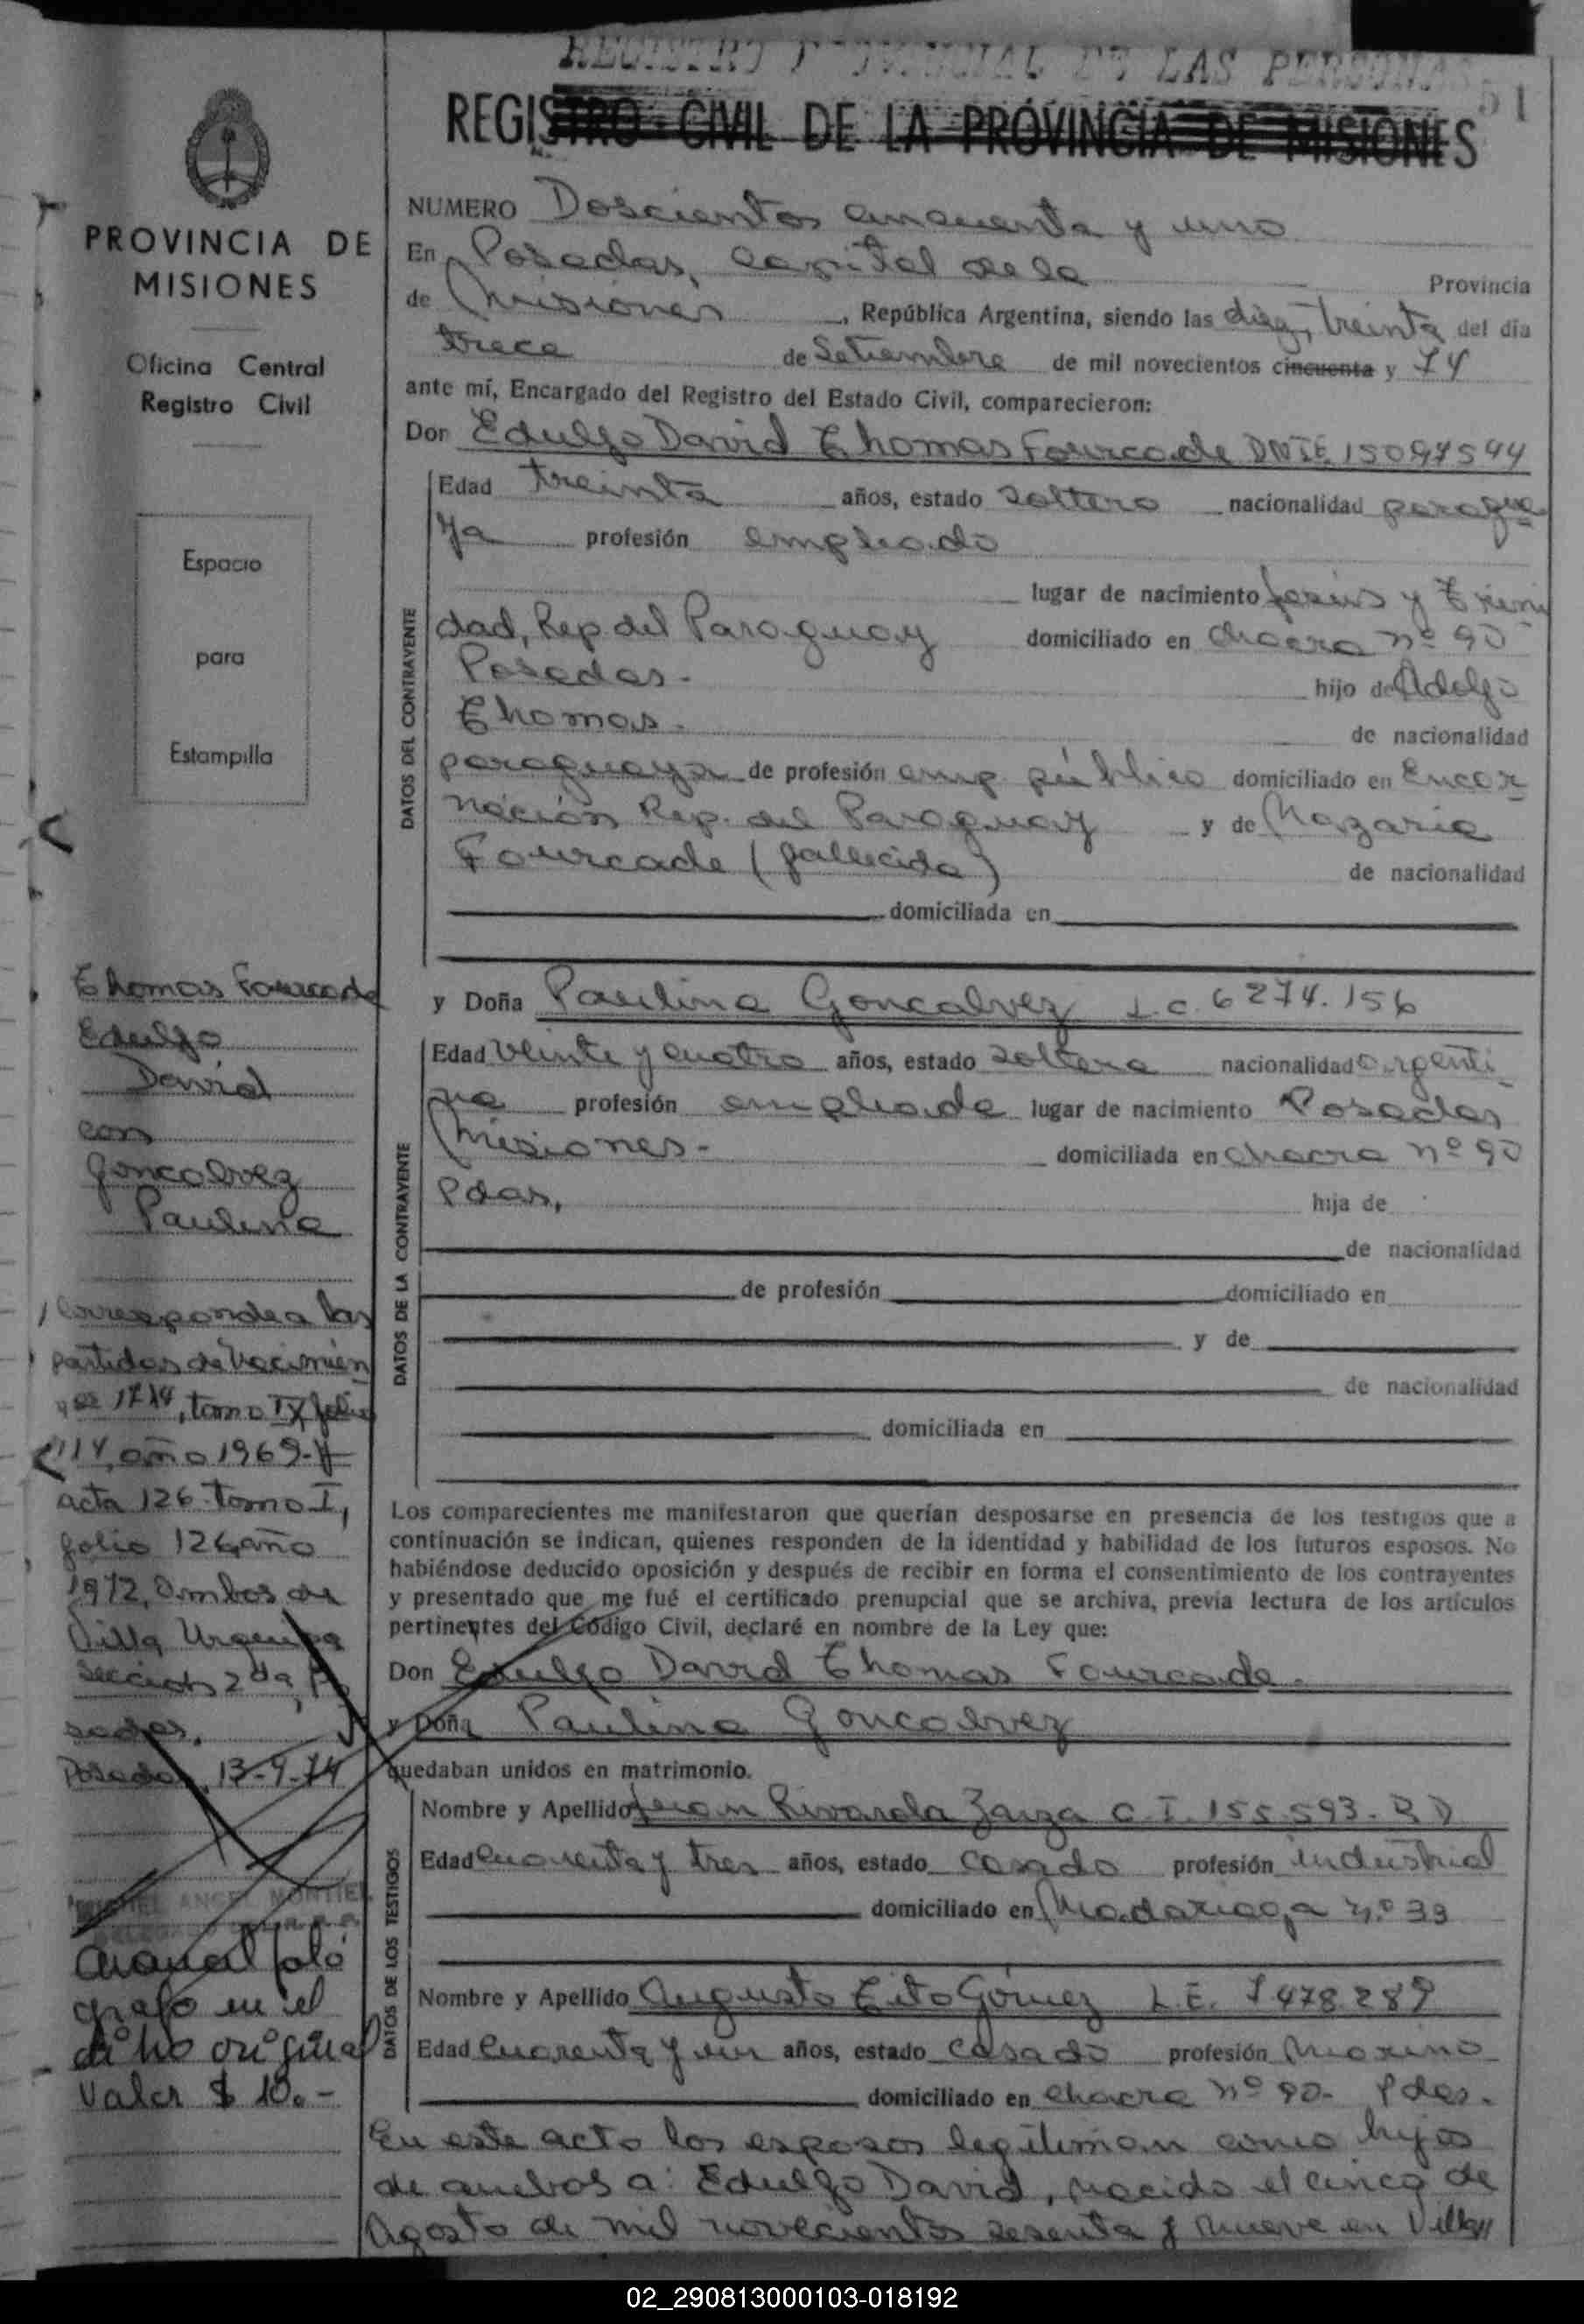 REGISTRO PROVINCIAL DE LAS PERSONAS
51
REGISTRO CIVIL DE LA PROVINCIA DE MISIONES
PROVINCIA DE
MISIONES
Oficina Central
Registro Civil
Espacio
para
Estampilla
NUMERO Doscientos cincuenta y uno
En Posadas, capital de la Provincia
de Misiones, República Argentina, siendo las diez, treinta del día
trece de Setiembre de mil novecientos cincuenta y 74
ante mí, Encargado del Registro del Estado Civil, comparecieron:
Don Edulfo David Thomas Fourcade DNIE 15097544
DATOS DEL CONTRAYENTE
Edad treinta años, estado soltero nacionalidad paragua
ya profesión empleado
lugar de nacimiento Jesús y Trini
dad, Rep. del Paraguay domiciliado en chacra nº 90
Posadas.- hijo de Adolfo
Thomas.- de nacionalidad
paraguaya de profesión emp. público domiciliado en Encar
nación Rep. del Paraguay y de Nazaria
Fourcade (fallecida) de nacionalidad
domiciliada en
y Doña Paulina Goncalvez L.C. 6274.156
DATOS DE LA CONTRAYENTE
Edad veinte y cuatro años, estado soltera nacionalidad argenti
na profesión empleada lugar de nacimiento Posadas
Misiones.- domiciliada en chacra nº 90
Pdas, hija de
de nacionalidad
de profesión domiciliado en
y de
de nacionalidad
domiciliada en
Los comparecientes me manifestaron que querían desposarse en presencia de los testigos que a
continuación se indican, quienes responden de la identidad y habilidad de los futuros esposos. No
habiéndose deducido oposición y después de recibir en forma el consentimiento de los contrayentes
y presentado que me fué el certificado prenupcial que se archiva, previa lectura de los artículos
pertinentes del Código Civil, declaré en nombre de la Ley que:
Don Edulfo David Thomas Fourcade.
y Doña Paulina Goncalvez
quedaban unidos en matrimonio.
DATOS DE LOS TESTIGOS
Nombre y Apellido Juan Rivarola Zarza C.I. 155.593.
Edad Cuarenta y tres años, estado casado profesión industrial
domiciliado en Madariaga nº 33
Nombre y Apellido Augusto Tito Gómez L.E. 7478289
Edad Cuarenta y un años, estado casado profesión Marino
domiciliado en chacra nº 90- Pdas.
En este acto los esposos legitiman como hijos
de ambos a: Edulfo David, nacido el cinco de
Agosto de mil novecientos sesenta y nueve en Villa//
Thomas Fourcade
Edulfo
David
con
Goncalvez
Paulina
Corresponde a las
partidas de nacimien
1714, tomo IX folio
114, año 1969-
acta 126-tomo I,
folio 126 año
1972, Ambos de
Villa Urquiza
sección 2da, Po
sadas.
Posadas, 13-9-74
MIGUEL ANGEL MONTIEL
Arancel foto
grafo en el
dicho original
Valor $ 10.-
02_290813000103-018192